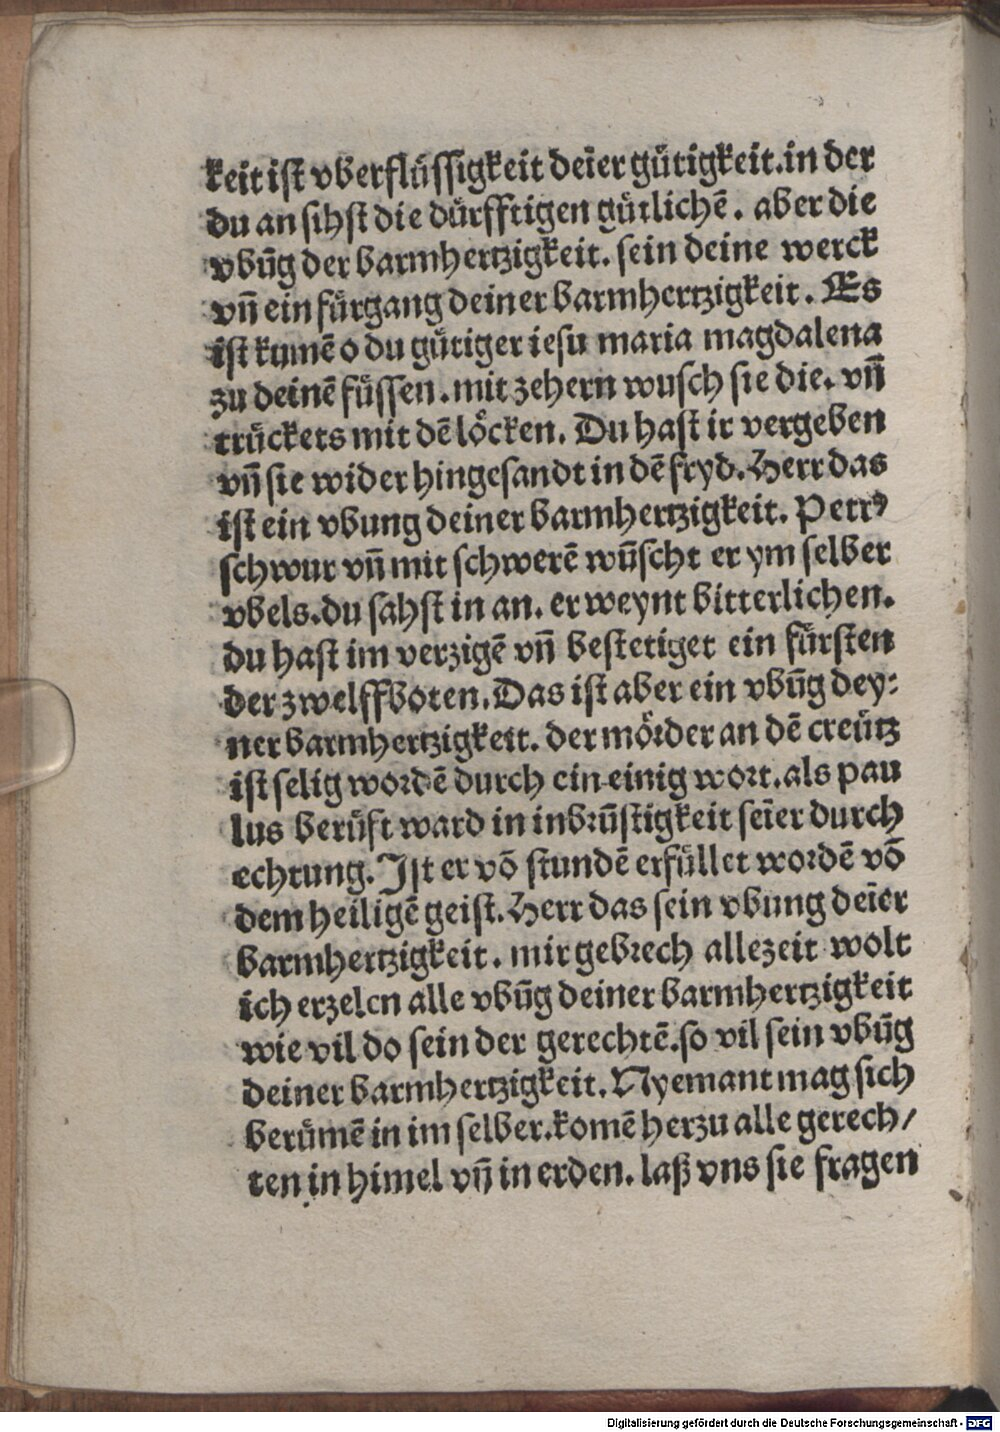 keit ist vberflüssigkeit deīer gütigkeit. in der
du an sihst die dürfftigen gütlichē. aber die
vbūg der barmhertzigkeit. sein deine werck
vñ ein fürgang deiner barmhertzigkeit. Es
ist kumē o du gütiger iesu maria magdalena
zu deinē füssen. mit zehern wusch sie die. vñ
trückets mit dē löcken. Du hast ir vergeben
vñ sie wider hingesandt in dē fryd. Herr das
ist ein vbung deiner barmhertzigkeit. Petrꝰ
schwur vñ mit schwerē wūscht er ym selber
vbels. du sahst in an. er weynt bitterlichen.
du hast im verzigē vñ bestetiget ein fürsten
der zwelffboten. Das ist aber ein vbūg dey:
ner barmhertzigkeit. der mörder an dē creütz
ist selig wordē durch ein einig wort. als pau
lus berüft ward in inbrüstigkeit seīer durch
echtung. Ist er vō stundē erfüllet wordē vō
dem heiligē geist. Herr das sein vbung deīer
barmhertzigkeit. mir gebrech allezeit wolt
ich erzelen alle vbūg deiner barmhertzigkeit
wie vil do sein der gerechtē. so vil sein vbūg
deiner barmhertzigkeit. Nyemant mag sich
berümē in im selber. komē herzu alle gerech/
ten in himel vñ in erden. laß vns sie fragen
Digitalisierung gefördert durch die Deutsche Forschungsgemeinschaft - DFG